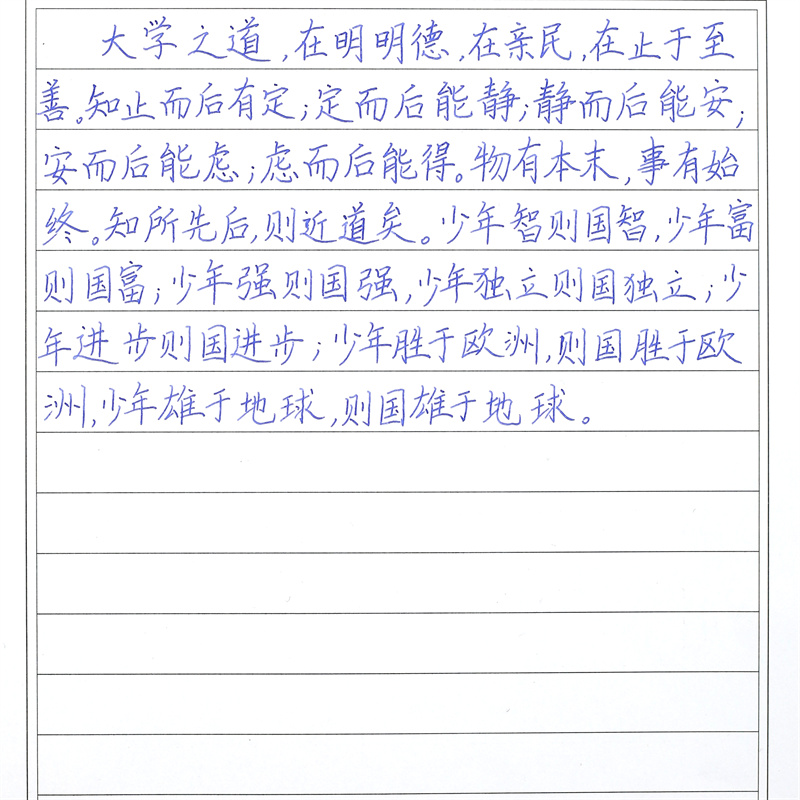 大学之道,在明明德,在亲民,在止于至
善。知止而后有定;定而后能静;静而后能安;
安而后能虑;虑而后能得。物有本末,事有始
终。知所先后,则近道矣。少年智则国智,少年富
则国富;少年强则国强,少年独立则国独立;少
年进步则国进步;少年胜于欧洲,则国胜于欧
洲,少年雄于地球,则国雄于地球。